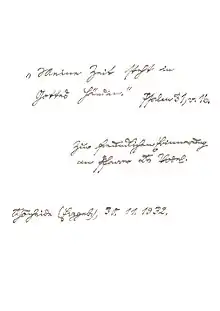 „Meine Zeit steht in
Gottes Händen.“ Psalm 31, v. 16.
Zur freundlichen Erinnerung
an Pfarrer
30. 11. 1932.